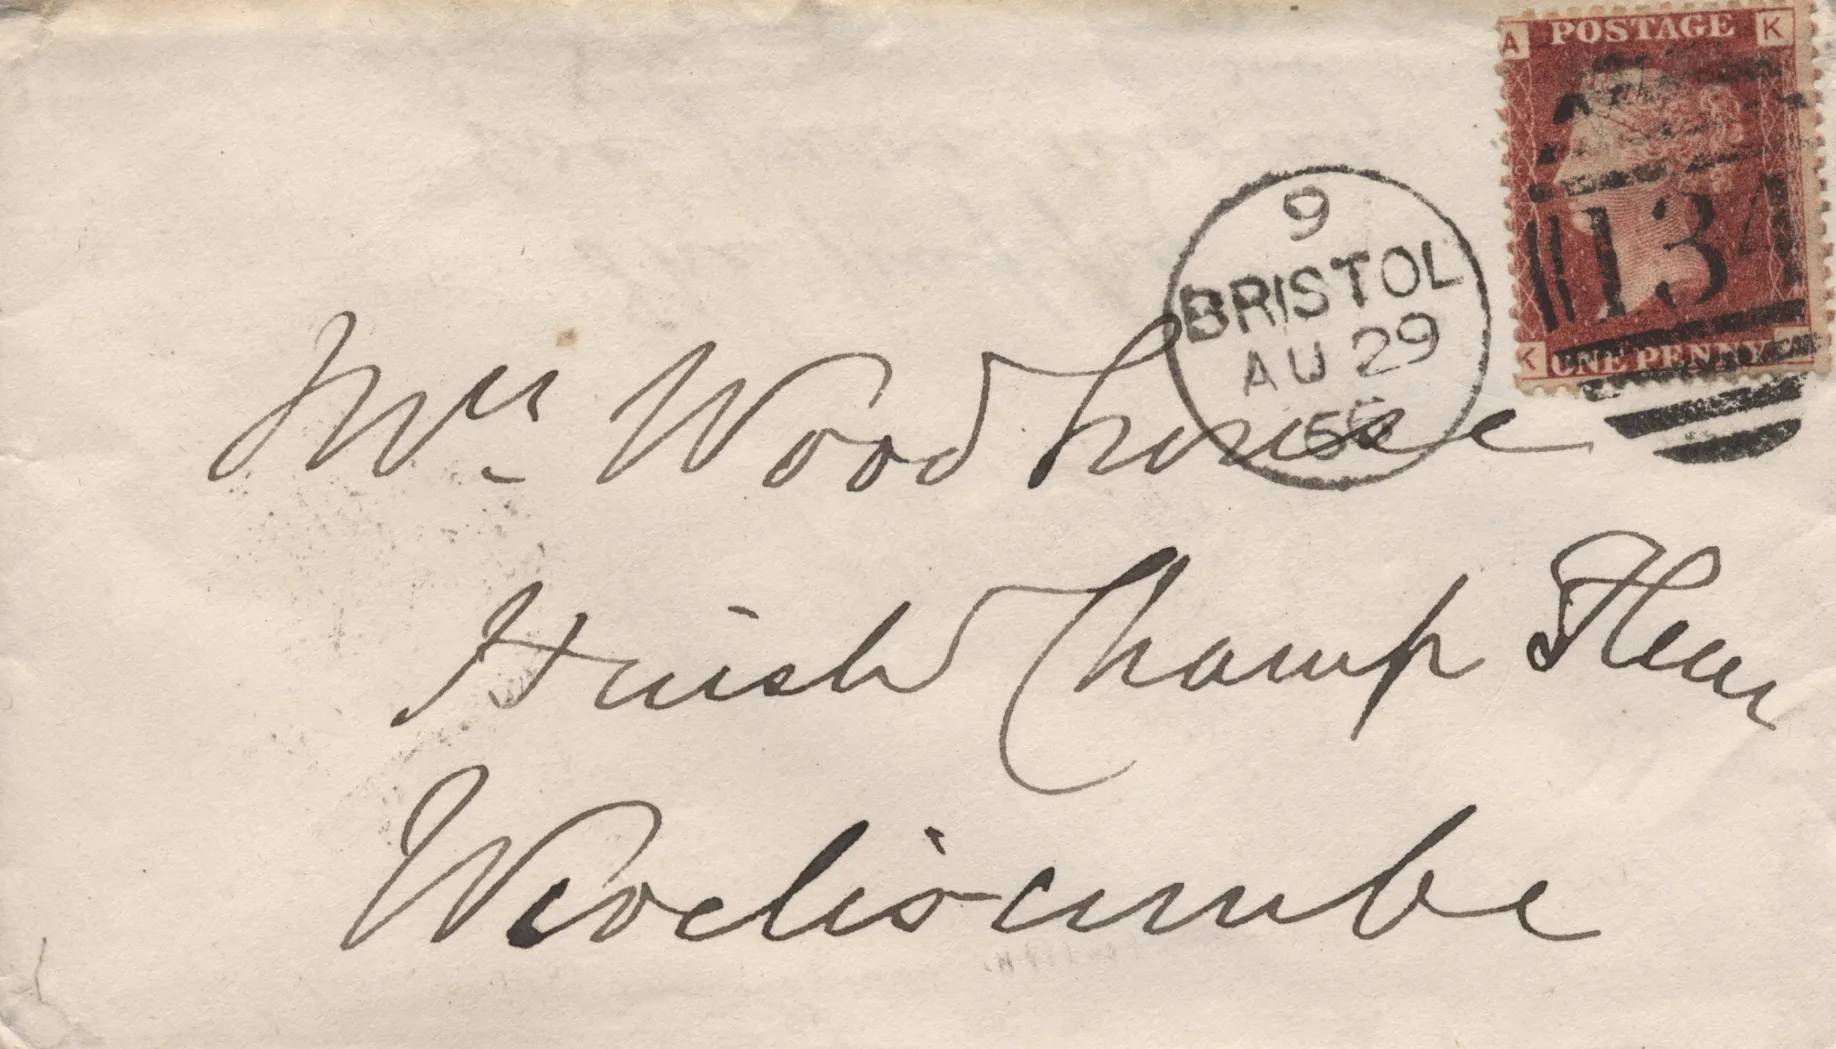 A POSTAGE K
134
K ONE PENNY
9
BRISTOL
AU 29
Mrs. Woodhouse
Huish Champ Fleur
Wiveliscombe